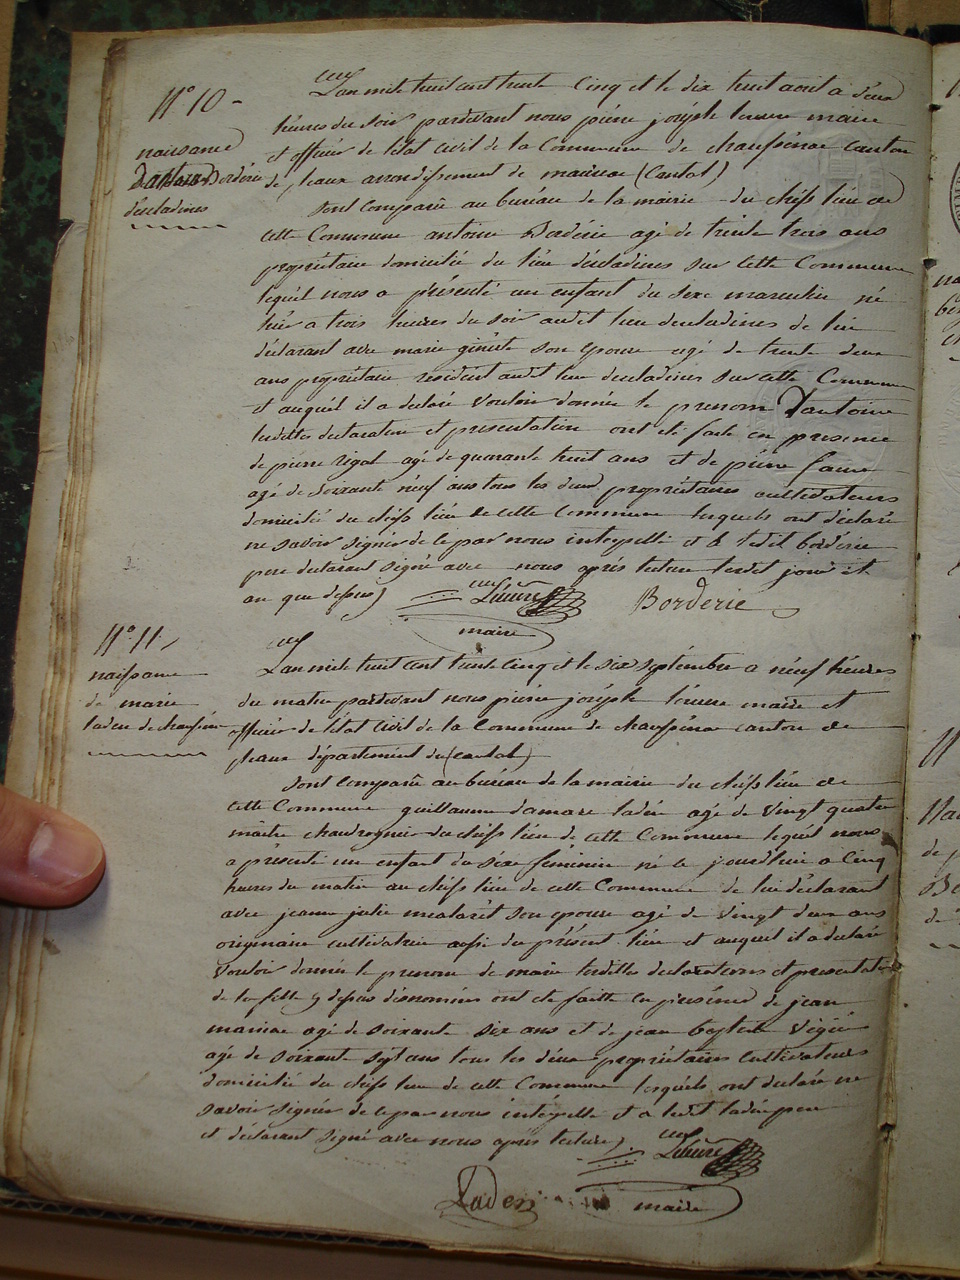 N° 10
naissance
Dantoine Borderie
descladines
L'an mile huit cent trente Cinq et le dix huit aout a deux
heures du soir pardevant nous pierre joseph maire
et officier de letat civil de la Commune de chaussenac canton
de pleaux arrondissement de mauriac (Cantal)
Sont Comparu au bureau de la mairie du cheff lieu de
cette Commune antoine Borderie agé de trente trois ans
propriétaire domicilié du lieu descladines sur cette Commune
lequel nous a présenté un enfant du sexe masculin né
hier a trois heures du soir audit lieu descladines de lui
déclarant avec marie ginéste son epouse agé de trente deux
ans propriétaire résident audit lieu descladines sur cette Commune
et auquel il a declaré vouloir donnée le prenom Dantoine
lesdittes declaration et presentation ont eté faite en presence
de pierre rigal agé de quarante huit ans et de pierre faure
agé de soixante neuf ans tous les deux propriétaires cultivateurs
domicilié du cheff lieu de cette Commune lesquels ont déclaré
ne savoir signér de ce par nous interpellé et le dit bordérie
pere declarant signé avec nous aprés lecture lesdit jour et
an que dessus
Borderie
maire
N° 11
naissance
de marie
ladée de chaussenac
L'an mile huit cent trente Cinq et le six septémbre a neuf heures
du matin pardevant nous pierre joséph maire et
officier de létat civil de la Commune de chaussénac canton de
pleaux département du (cantal)
Sont Comparu au buréau de la mairie du cheff lieu de
cette Commune guillaume damase ladée agé de vingt quatre
maitre chaudronnier du cheff lieu de cette Commune lequel nous
a présenté un enfant du séxe féminin né ce jourdhui a Cinq
heures du matin au cheff lieu de cette Commune de lui déclarant
avec jeanne julie malarét son epouse agé de vingt deux ans
originaire cultivatrice aussi du présent lieu et auquel il a declaré
vouloir donnée le prenom de marie lesdittes declarations et presentation
de la fille cy dessus dénommées ont eté faitte en presénce de jean
mauriac agé de soixante six ans et de jean baptiste
agé de soixante sept ans tous les déux propriétaires cultivateurs
domicilié du cheff lieu de cette Commune lesquéls ont declaré ne
savoir signér de ce par nous intérpellé et a ledit ladée pere
et déclarant signé avec nous aprés lecture
Ladée
maire